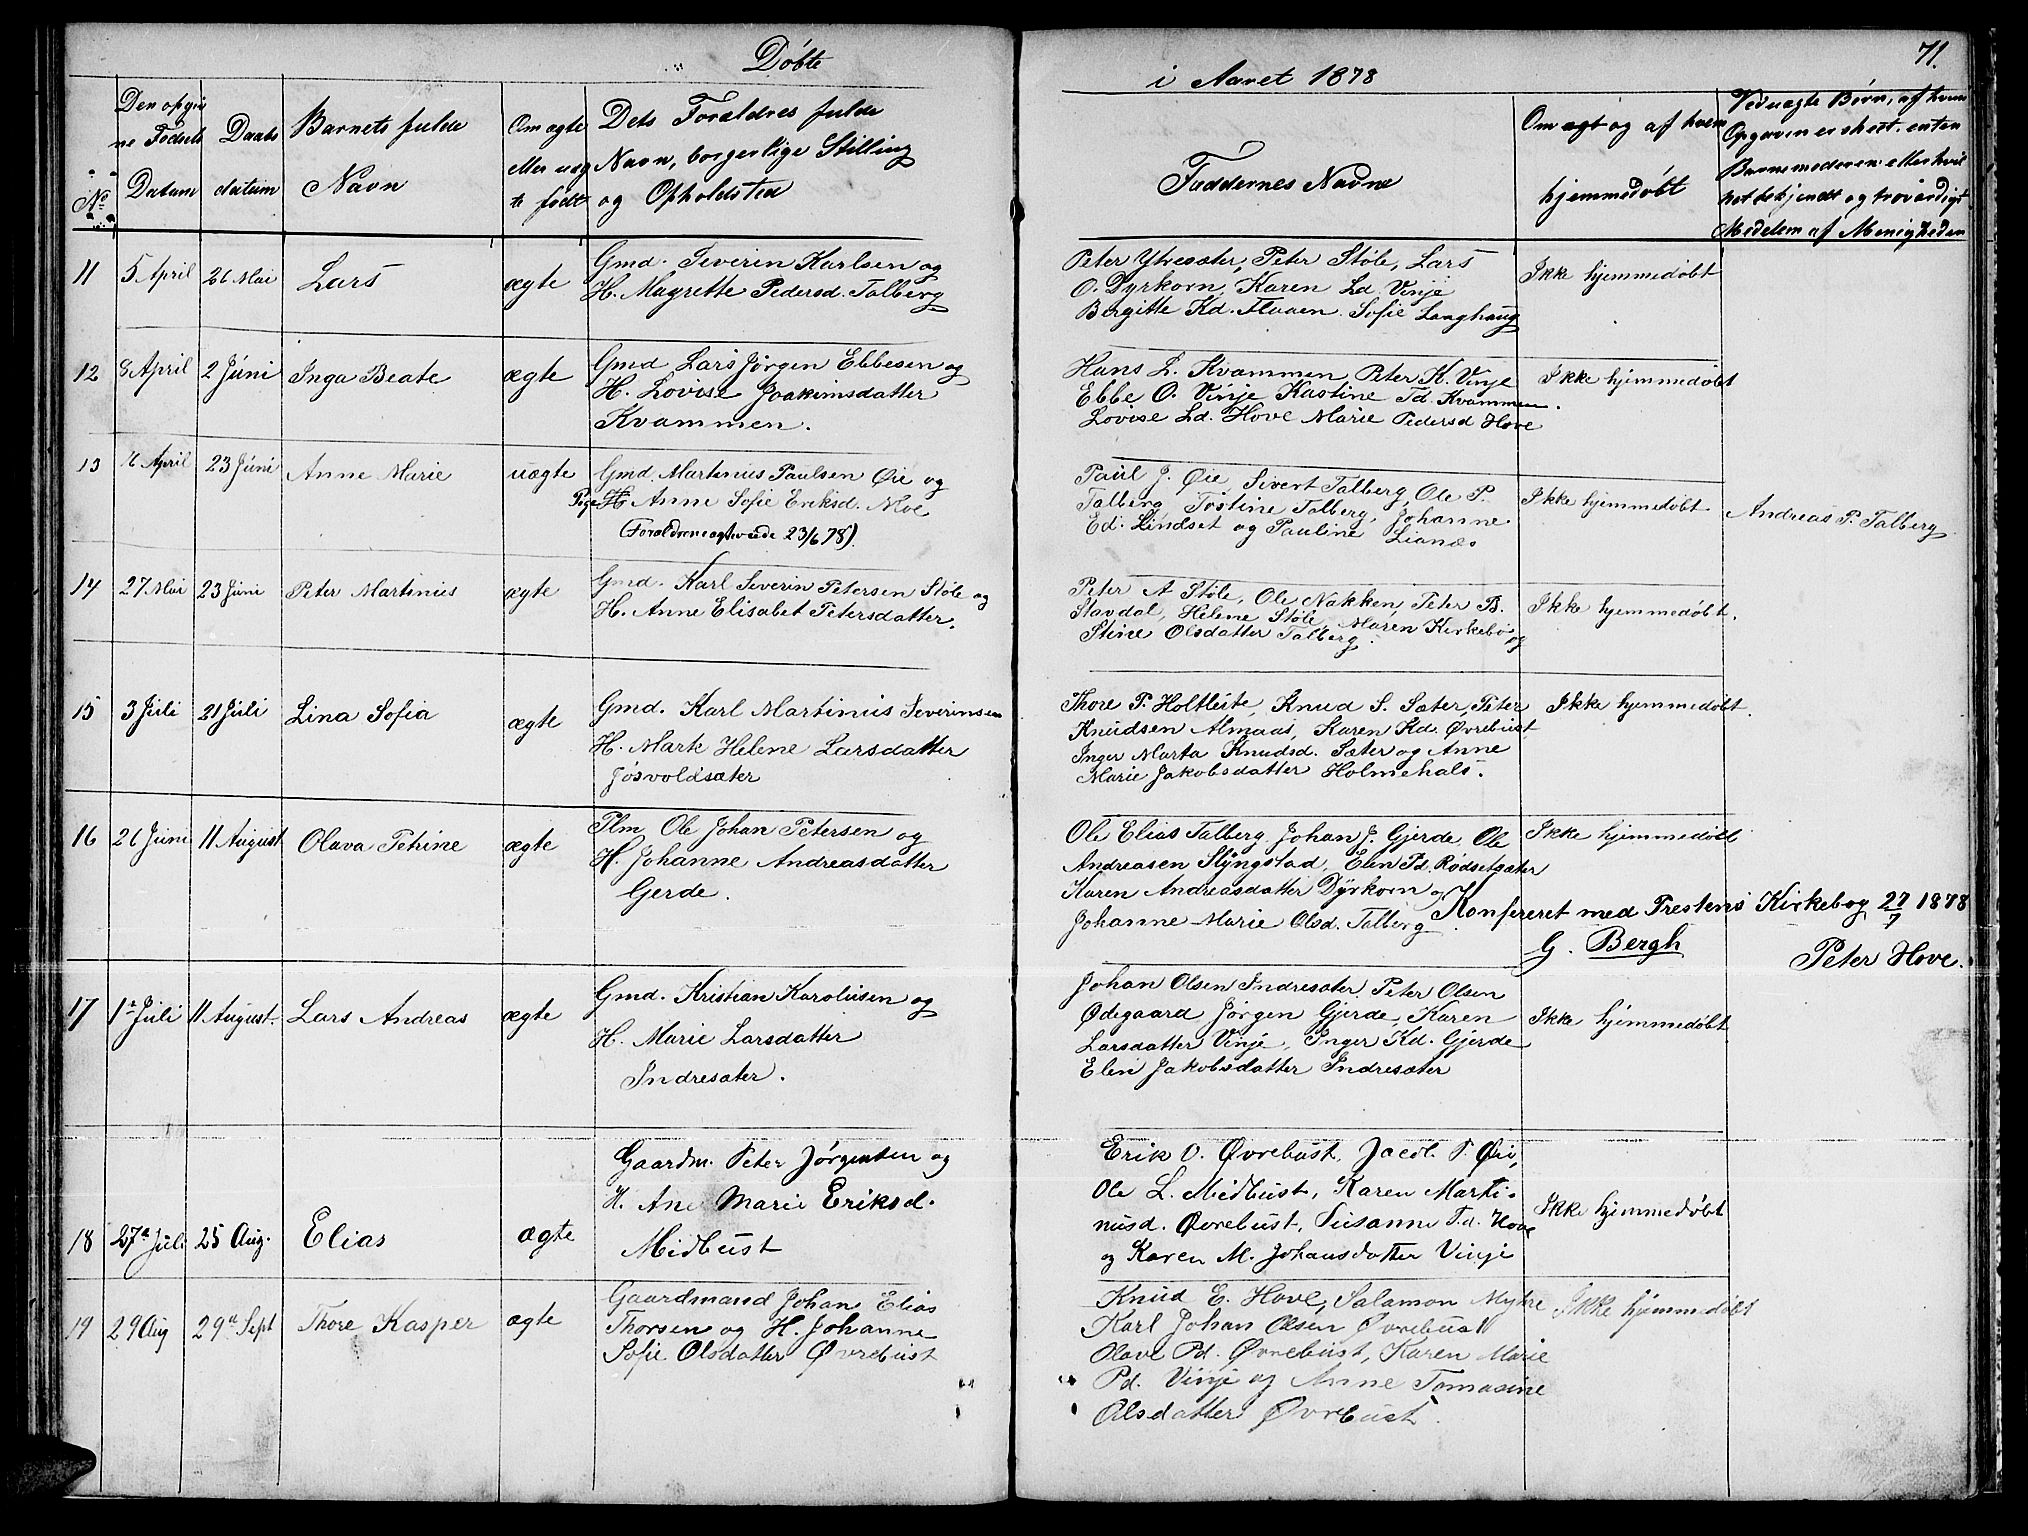 Døbte
i Aaret 1878
71.
No
Den opgiv
ne Fødsels
Datum
Daabs
datum
Barnets fulde
Navn
Om ægte
eller uæg
te født
Dets Forældres fulde
Navn, borgerlige Stilling
og Opholdsted
Faddernes Navne
Omægt og af hvem
hjemmedøbt
Ved uægte Børn, af hvem
Opgaven er skeet, enten
Barnemoderen eller hvil
ket bekjendt og troværdigt
Medelem af Menigheden
11 5 April 26 Mai Lars ægte
Gmd. Severin Karlsen og
H. Magrette Pedersd. Talberg
Peter Ytresæter, Peter Støle, Lars
O. Dyrkorn, Karen Ld. Vinje
Birgitte Kd. Fluaen Sofie Langhaug
Ikke hjemmedøbt
12 8 April 2 Juni Inga Beate ægte
Gmd Lars Jørgen Ebbesen og
H. Lovise Joakimsdatter
Kvammen.
Hans L. Kvammen Peter K. Vinje
Ebbe O. Vinje Kastine Td. Kvammen.
Lovise Ld. Hove Marie Pedersd Hove
Ikke hjemmedøbt
13 16 April 23 Juni Anne Marie uægte
Gmd. Martinus Paulsen Øie og
Pige H. Anne Sofie Eriksd. Moe
(Forældrene egteviede 23/6 78)
Paul J. Øie, Sivert Talberg, Ole P.
Talberg, Jostine Talberg, Johanne
Ed. Lindset og Pauline Lianæs
Ikke hjemmedøbt
Andreas P. Talberg
14 27 Mai 23 Juni Peter Martinus ægte
Gmd. Karl Severin Petersen Støle og
H. Anne Elisabet Petersdatter.
Peter A Støle, Ole Nakken, Peter B.
Stavdal, Helene Støle, Maren Kirkebø og
Stine Olsdatter Talberg.
Ikke hjemmedøbt.
15 3 Juli 21 Juli Lina Sofia ægte
Gmd. Karl Martinus Severinsen
H. Mark Helene Larsdatter
Jøsvoldsæter
Thore P. Holtleite, Knud S. Sæter, Peter
Knudsen Almaas, Karen Kd. Øvrebust
Inger Marta Knudsd. Sæter og Anne
Marie Jakobsdatter Holmehals.
Ikke hjemmedøbt.
16 26 Juni 11 August Olava Petrine ægte
Plm Ole Johan Petersen og
H. Johanne Andreasdatter
Gerde.
Ole Elias Talberg, Johan J. Gjerde, Ole
Andreasen Slyngstad, Elen Pd. Rødsetsæter
Karen Andreasdatter Dyrkorn og
Johanne Marie Olsd. Talberg.
Ikke hjemmedøbt
Konfereret med Prestens Kirkebog 27/7 1878
G. Bergh
Peter Hove.
17 1a Juli 11 August. Lars Andreas ægte
Gmd. Kristian Karolusen og
H. Marie Larsdatter
Indresæter.
Johan Olsen Indresæter, Peter Olsen
Ødegaard Jørgen Gjerde, Karen
Larsdatter Vinje, Inger Kd. Gjerde
Elen Jakobsdatter Indresæter
Ikke hjemmedøbt
18 27a Juli 25 Aug. Elias ægte
Gaardm. Peter Jørgensen og
H. Ane Marie Eriksd.
Midbust
Erik O. Øvrebust, Jacob P. Øie,
Ole L. Midbust, Karen Marti-
nusd. Øvrebust, Susanne T.d. Hove
og Karen M. Johansdatter Vinje
Ikke hjemmedøbt
19 29 Aug 29a Sept Thore Kasper ægte
Gaardmand Johan Elias
Thorsen og H. Johanne
Sofie Olsdatter Øvrebust
Knud E. Hove, Salamon Myhre
Karl Johan Olsen Øvrebust
Olave Pd. Øvrebust, Karen Marie
Pd. Vinje og Anne Tomasine
Olsdatter Øvrebust.
Ikke hjemmedøbt